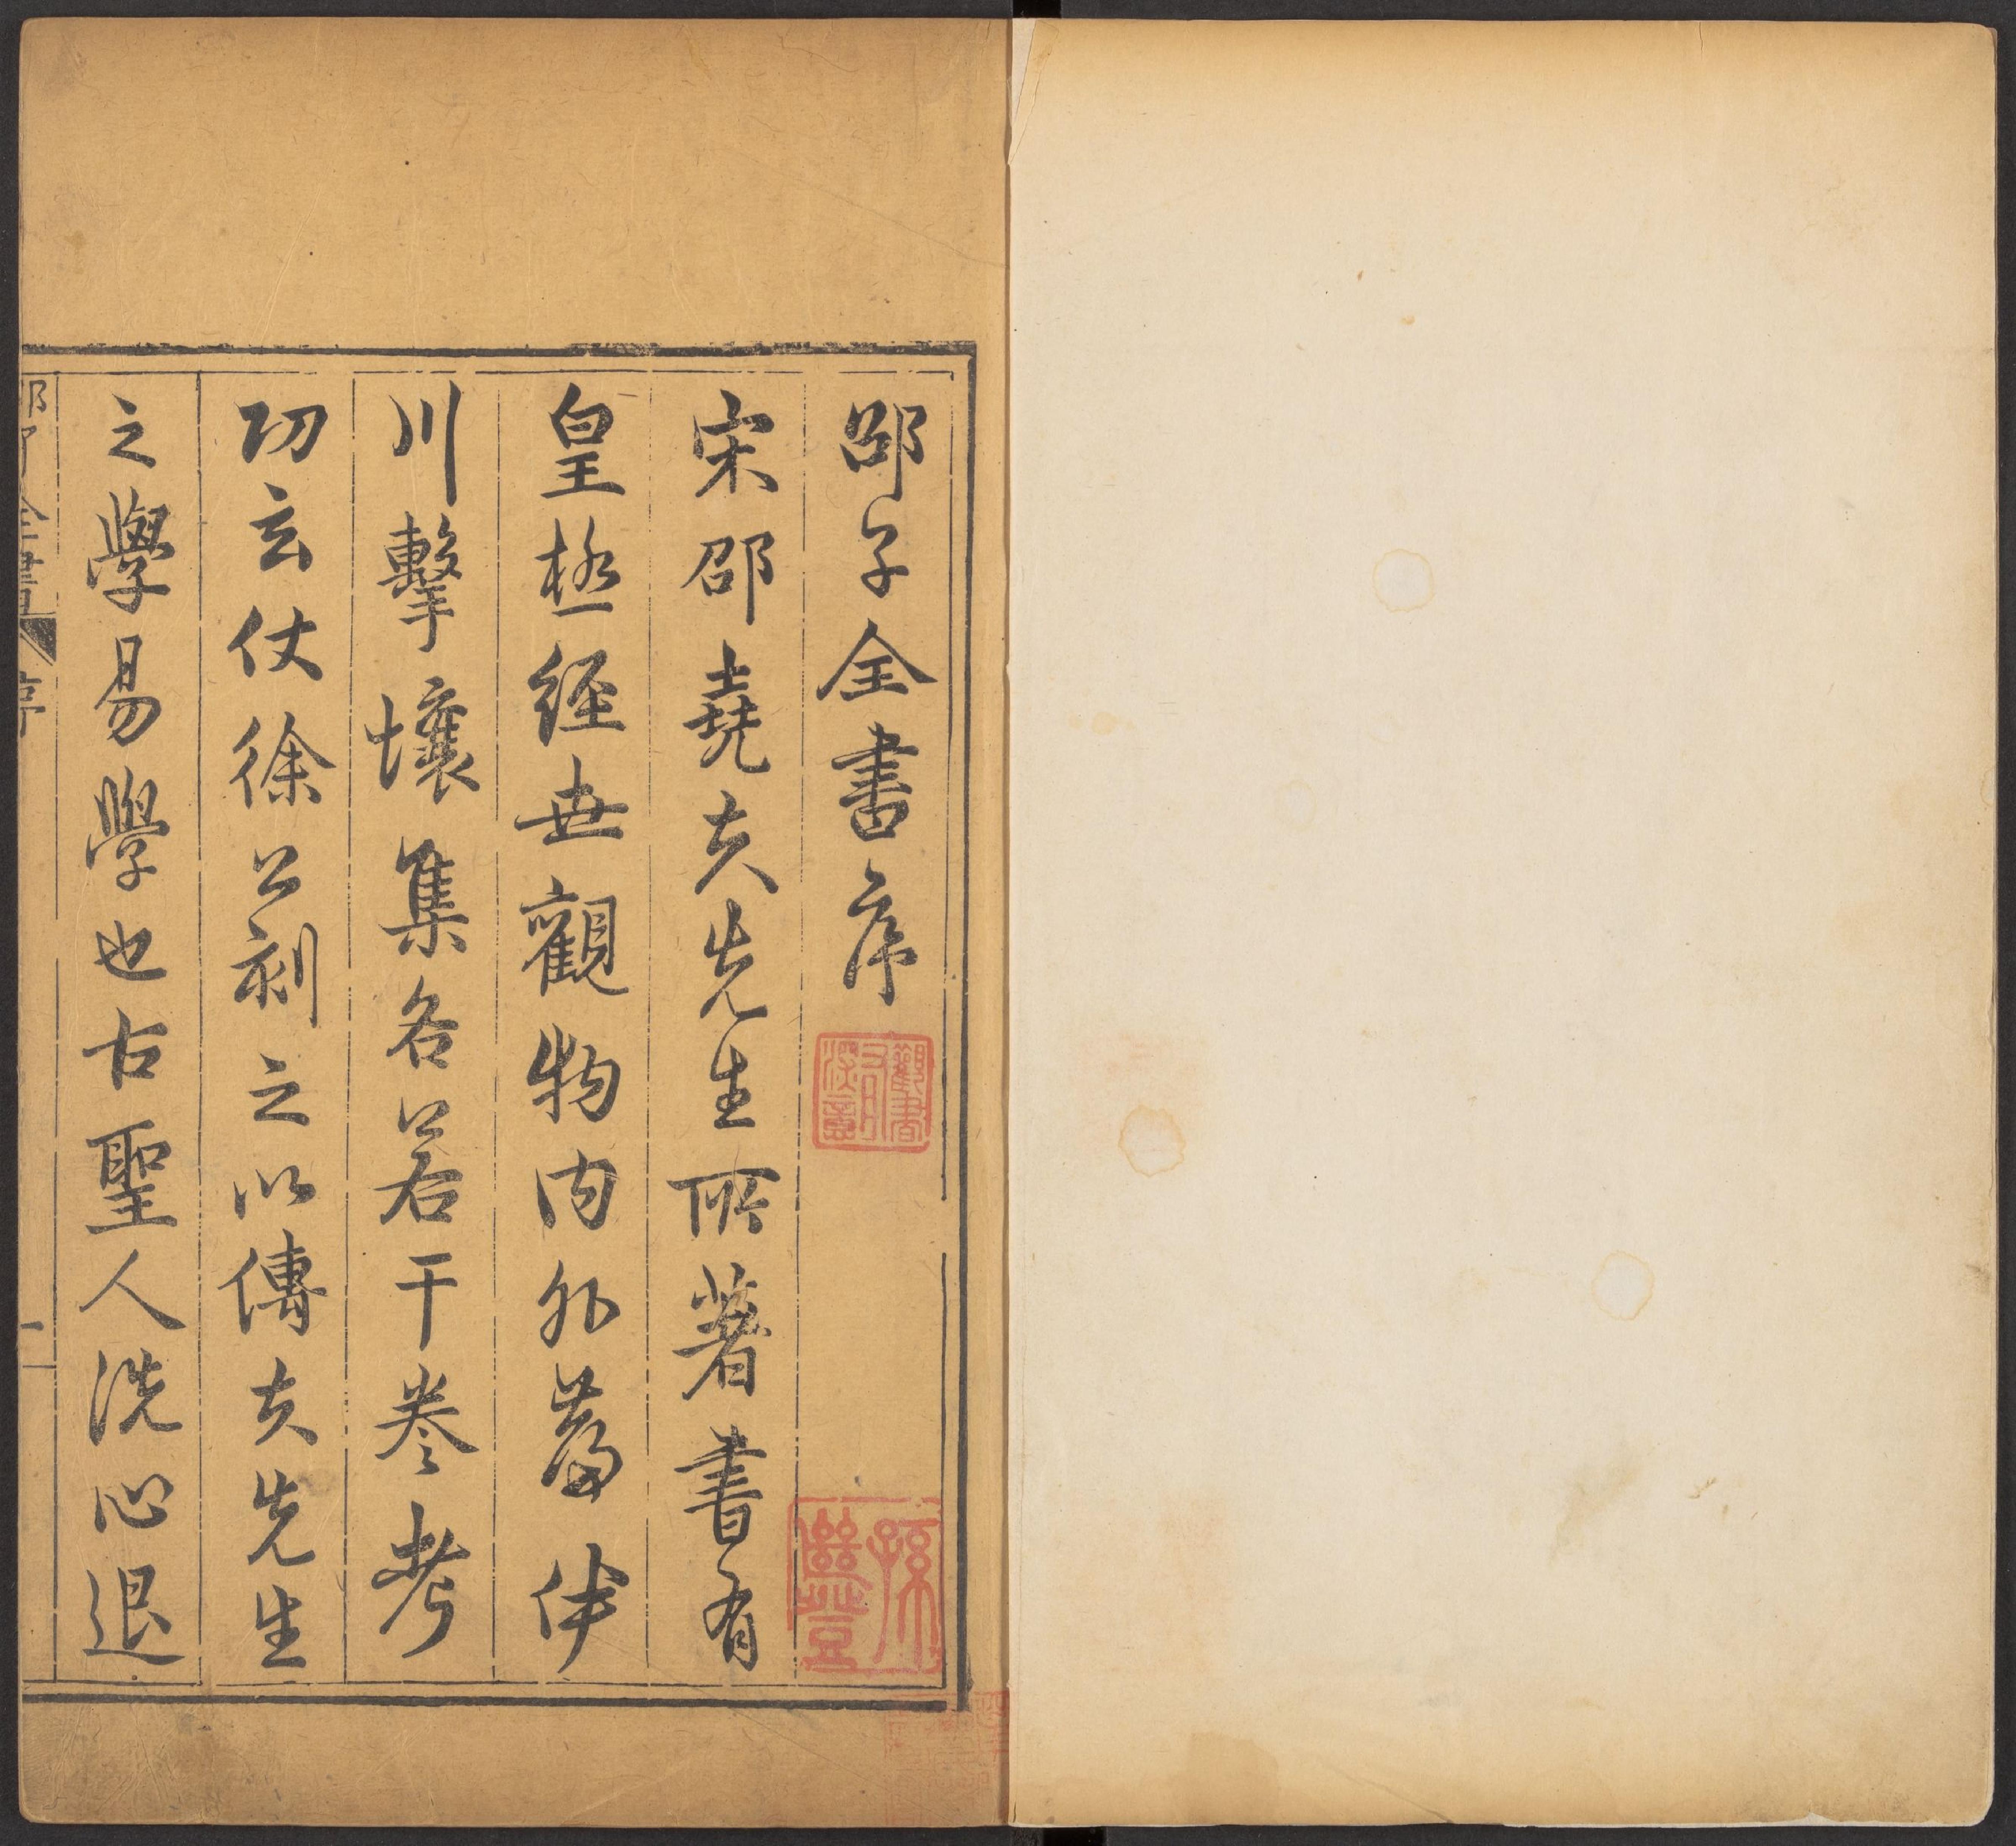 邵子全書序
宋邵堯夫先生所著書有
皇極經世觀物內外篇伊
川擊壤集各若干卷考
功玄仗徐公刻之以傳夫先生
之學易學也古聖人洗心退
邵子全書
序
一
觀書有深意
孫豐